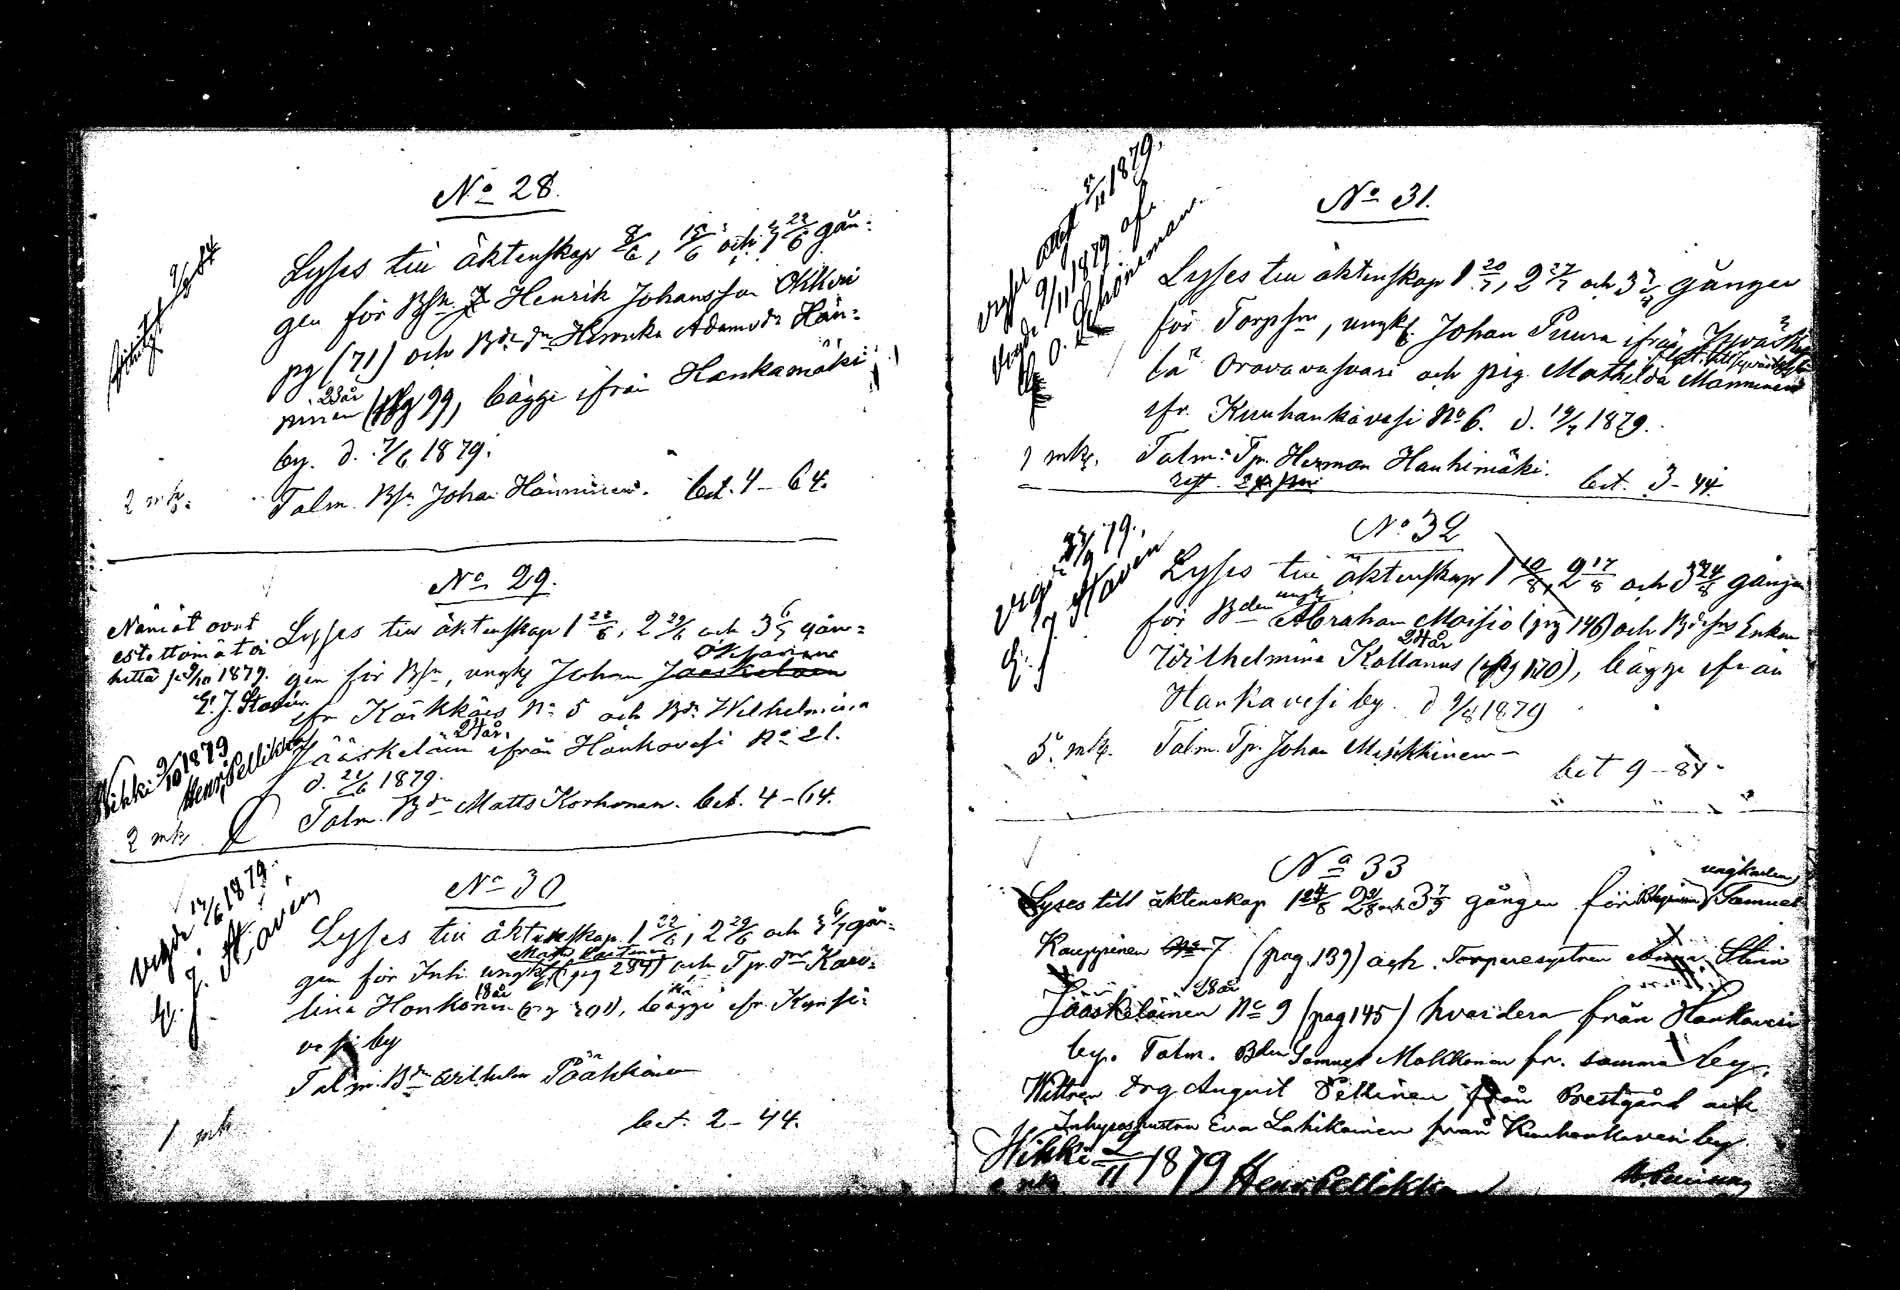 No 28.
Lysses till äktenskap 8/6, 15/6 och 22/6 gån-
gen för Bsn Henrik Johansson Okkeri
pg (71) och Bde dr Henrika Adamsdr Hän-
ninen 23 år (pg 99), bägge ifrån Hankamäki
by. d. 7/6 1879.
2 mk. Talm. Bsn Johan Hänninen. bet. 4 - 64.
No 29.
Nämät ovat
estettömätöi
hettä 9/10 1879.
E. J. Stavén
Wihki 9/10 1879
Henr. Pellikka
Lysses till äktenskap 1 22/6, 2 29/6 och 3 6/7 gån-
gen för Bsn, ungk Johan
ifr Kärkkäis No 5 och Bdr Wilhelmina
Jääskeläin 24 år. ifrån Hankavesi No 21.
d. 21/6 1879.
2 mk Talm. Bdn Matts Korhonen. bet. 4 - 64.
No 30
Vigde 1879.
E. J. Stavén
Lysses till äktenskap 1 22/6, 2 29/6 och 3 6/7 gån-
gen för Inh. ungk (pg 284) och Tpr. dr Karo-
lina Honkonen 18 år, bägge ifr. Kynsi-
vesi by
Talm. Bdn Wilhelm Pääkkönen
1 mk bet. 2 - 44.
No 31.
1879.
Vigde 9/11 1879 af
O. Schöneman.
Lysses till äktenskap 1 20/7, 2 27/7 och 3 gången
för Torpsn, ungk Johan Puura ifrån Jyväsky-
lä Oravavasvari och pig. Mathilda Manninen
ifr. Kuuhankavesi No 6. d. 19/7 1879.
1 mk. Talm. Tpr. Herman Hauhimäki.
bet. 3 - 44.
No 32
Vigde 79.
E. J. Stavén
Lysses till äktenskap 1 10/8, 2 17/8 och 3 24/8 gången
för Bden ungk Abraham Moisio (pg 146) och Bdesns Enkan
Wilhelmina Kottanus 24 år (pg 120), bägge ifrån
Hankavesi by. d 9/8 1879
5. mk. Talm. Tpr. Johan Miekkinen
bet 9 - 84
No 33
Lyses till äktenskap 1 24/8 2 och 3 7/9 gången för ungkarlen Samuel
Kauppinen No 7 (pag. 139) och Torparesystren Stiin
Jääskeläinen 28 år No 9 (pag 145) hvardera från Hankavesi
by. Talm. Bden Samuel Mahkonen fr. samma by.
Wittnen Drg August Peltinen från Prestgård och
Inhyseshustrun Eva Lahikainen från Kuuhankavesi by.
Wihki 2/11 1879 Henr Pellikka